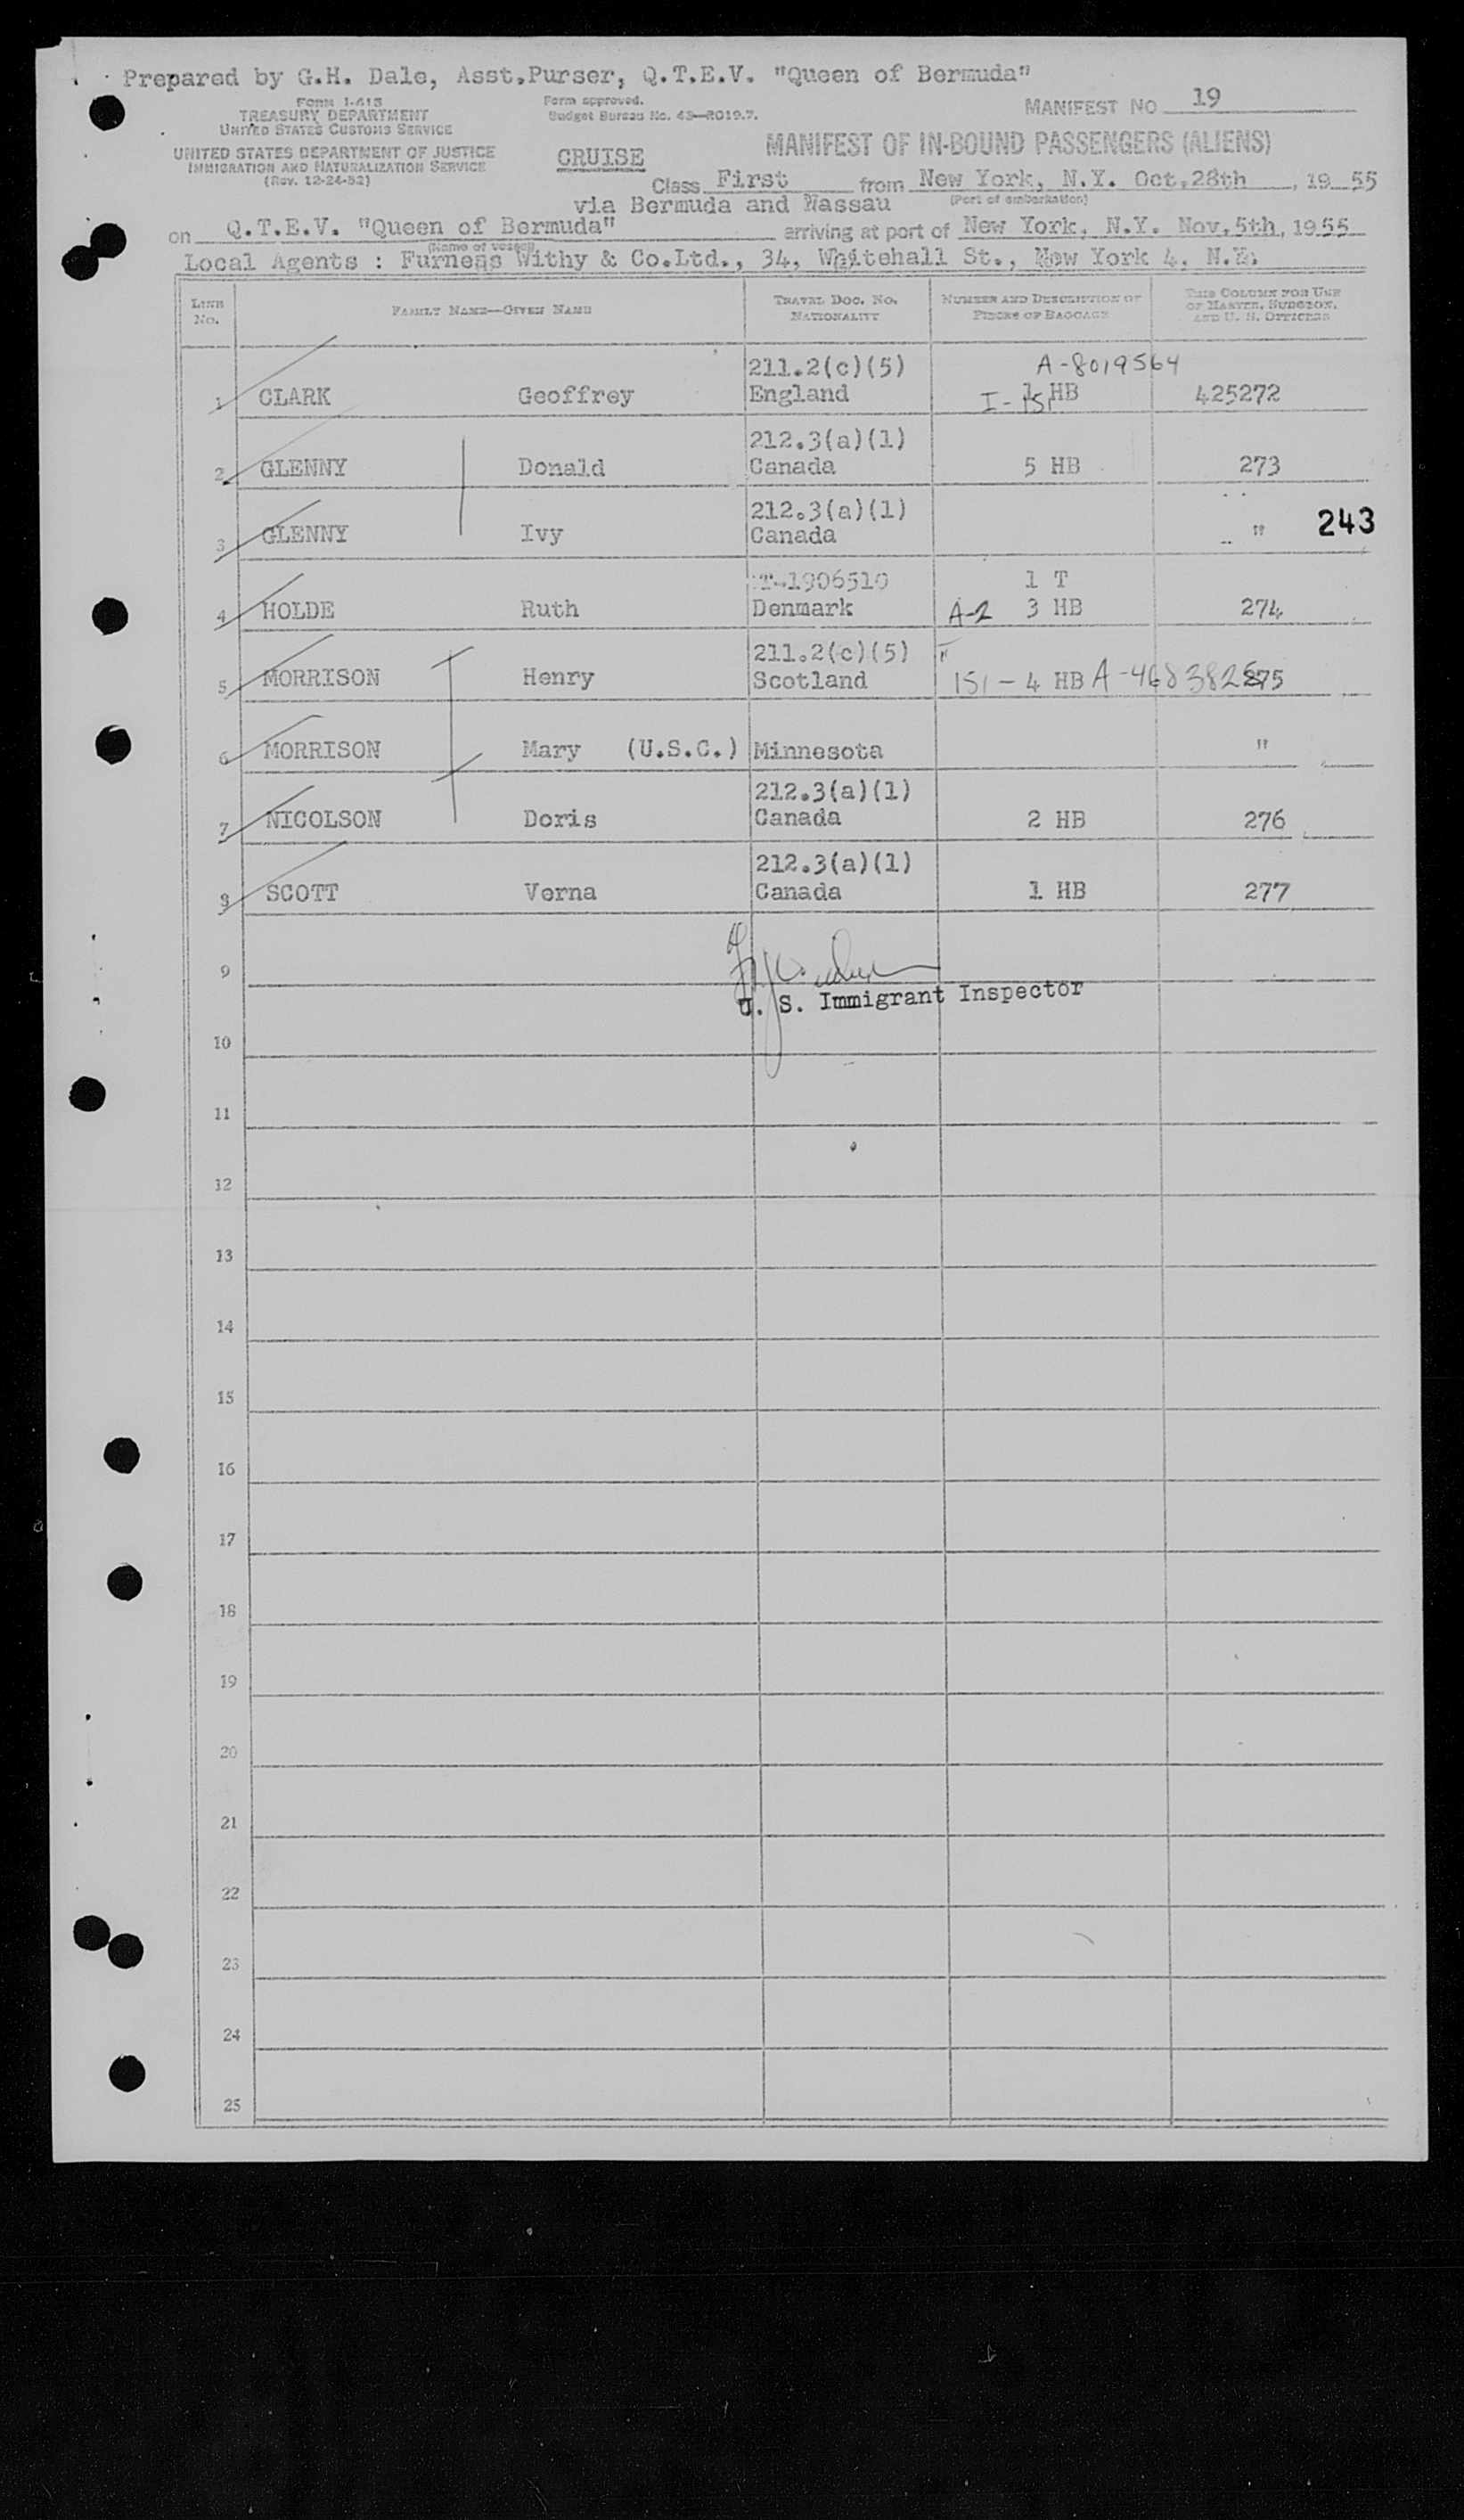 Prepared by G.H. Dale, Asst.Purser, Q.T.E.V. "Queen of Bermuda"
Form I-415
TREASURY DEPARTMENT
UNITED STATES CUSTOMS SERVICE
Form approved.
Budget Bureau No. 43—R019.7.
MANIFEST NO 19
UNITED STATES DEPARTMENT OF JUSTICE
IMMIGRATION AND NATURALIZATION SERVICE
(Rev. 12-24-52)
CRUISE
MANIFEST OF IN-BOUND PASSENGERS (ALIENS)
Class First from New York, N.Y. Oct.28th, 1955
via Bermuda and Nassau (Port of embarkation)
on Q.T.E.V. "Queen of Bermuda" arriving at port of New York, N.Y. Nov.5th, 1955
(Name of vessel)
Local Agents : Furness Withy & Co.Ltd., 34, Whitehall St., New York 4. N.Y.
LINE No. FAMILY NAME—GIVEN NAME TRAVEL DOC. NO. NATIONALITY NUMBER AND DESCRIPTION OF PIECES OF BAGGAGE THIS COLUMN FOR USE OF MASTER, SURGEON, AND U. S. OFFICERS
211.2(c)(5) A-8019564
1 CLARK Geoffrey England I-151 1 HB 425272
212.3(a)(1)
2 GLENNY Donald Canada 5 HB 273
212.3(a)(1)
3 GLENNY Ivy Canada " 243
T-1906510 1 T
4 HOLDE Ruth Denmark A-2 3 HB 274
211.2(c)(5)
5 MORRISON Henry Scotland 151 - 4 HB A-4683828 275
6 MORRISON Mary (U.S.C.) Minnesota "
212.3(a)(1)
7 NICOLSON Doris Canada 2 HB 276
212.3(a)(1)
8 SCOTT Verna Canada 1 HB 277
9
U. S. Immigrant Inspector
10
11
12
13
14
15
16
17
18
19
20
21
22
23
24
25